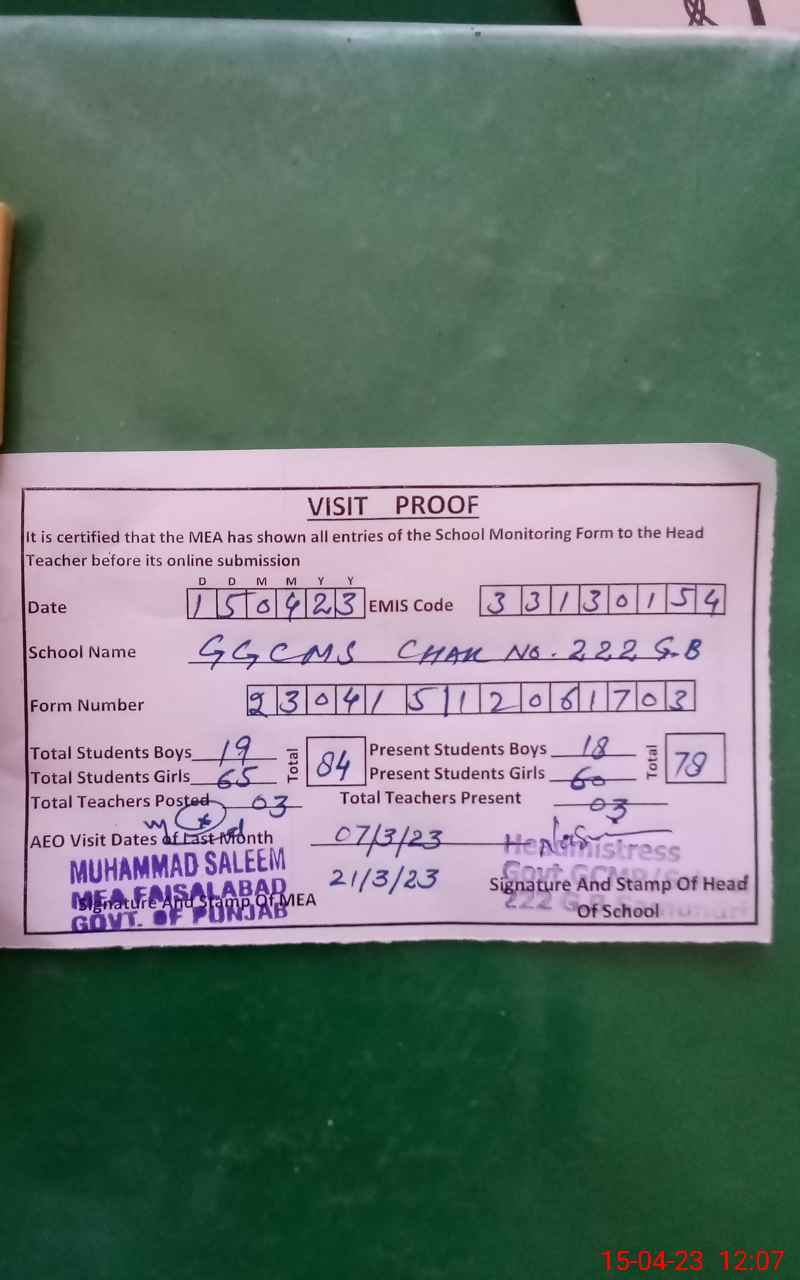 VISIT PROOF
It is certified that the MEA has shown all entries of the School Monitoring Form to the Head
Teacher before its online submission
D D M M Y Y
Date 1 5 0 4 2 3 EMIS Code 3 3 1 3 0 1 5 4
School Name GGCMS CHAK NO. 222 G.B
Form Number 2 3 0 4 1 5 1 1 2 0 6 1 7 0 3
Total Students Boys 19 Total 84 Present Students Boys 18 Total 78
Total Students Girls 65 Present Students Girls 60
Total Teachers Posted 03 Total Teachers Present 03
AEO Visit Dates of Last Month 07/3/23
21/3/23
MUHAMMAD SALEEM
MEA FAISALABAD
GOVT. OF PUNJAB
Signature And Stamp Of MEA
Headmistress
Govt
222 G.B
Signature And Stamp Of Head
Of School
15-04-23 12:07